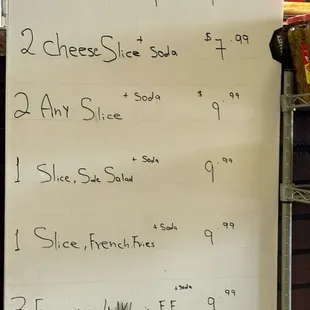 2 Cheese Slice + Soda $7.99
2 Any Slice + Soda $9.99
1 Slice, Side Salad + Soda 9.99
1 Slice, French Fries + Soda 9.99
+ Soda 9.99